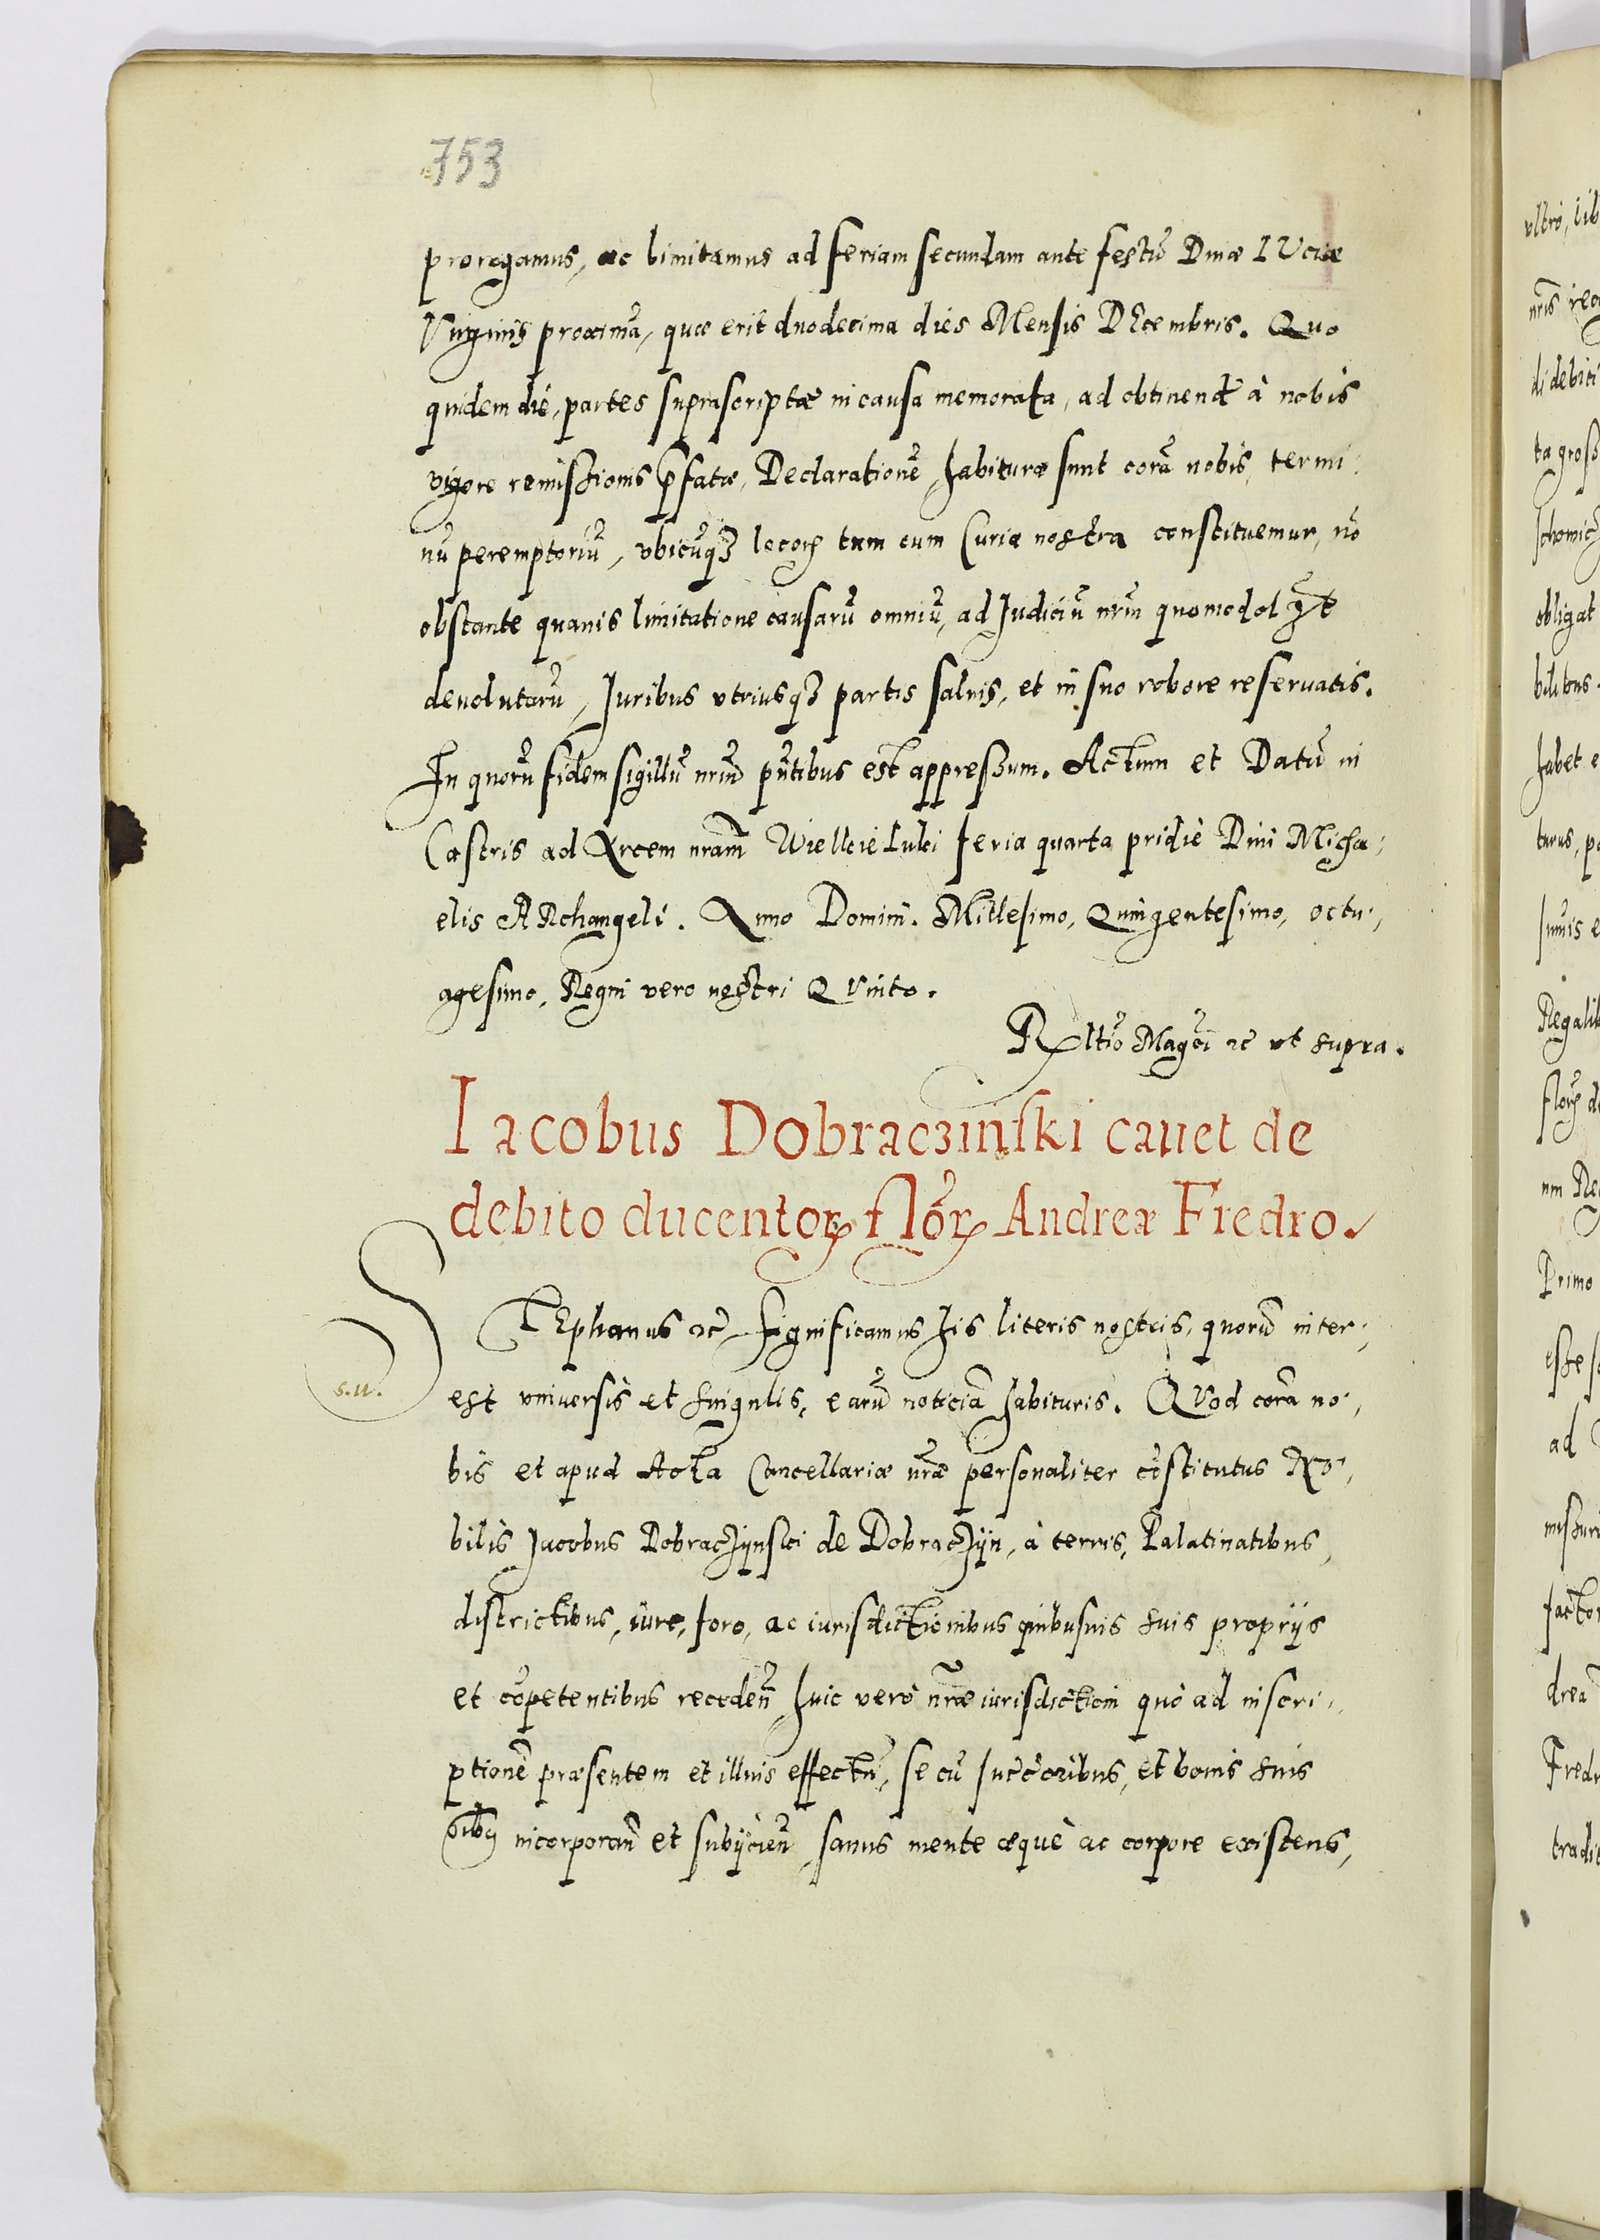 753
prorogamus, ac limitamus ad feriam secundam ante festū Diuæ LUciæ
Virginis proximā, quæ erit duodecima dies Mensis DEcembris. Quo
quidem die, partes suprascriptæ in causa memorata, ad obtinend à nobis
vigore remissionis p̄fatæ, Declarationē, habituræ sunt corā nobis, termi,
nū peremptoriū, vbicūq3 locorꝝ tum cum Curia nostra constituemur, nō
obstante quauis limitatione causarū omniū, ad Judiciū nrm̄
deuolutarū, Juribus vtriusq3 partis saluis, et in suo robore reseruatis.
In quorū fidem sigillū nrum̄ pn̄tibus est appressum. Actum et Datū in
Castris ad Arcem nram̄ Wielkie Luki feria quarta pridiè Diui Micha,
elis ARchangeli. Anno Domini. Millesimo, Quingentesimo, octu,
agesimo, Regni vero nostri QVinto.
Rltio Magci ec ut supra.
Iacobus Dobraczinski cauet de
debito ducentorꝝ florꝝ Andreæ Fredro.
STEphanus ec Significamus his literis nostris, quorū inter,
s.u.
est vniuersis et singulis, earū noticiā habituris. QVod corā no,
bis et apud Acta Cancellariæ nrǣ personaliter cōstitutus No,
bilis Jacobus Dobraczijnski de Dobraczijn, à terris, Palatinatibus,
districtibus, iure, foro, ac iurisdictionibus quibusuis suis proprijs
et cōpetentibus recedeñ, huic verò nrǣ iurisdictioni quò ad inscri,
ptionē præsentem et illius effectū, se cū succ̄oribus, et bonis suis
oībꝯ incorporañ et subijcieñ, sanus mente æquè ac corpore existens,